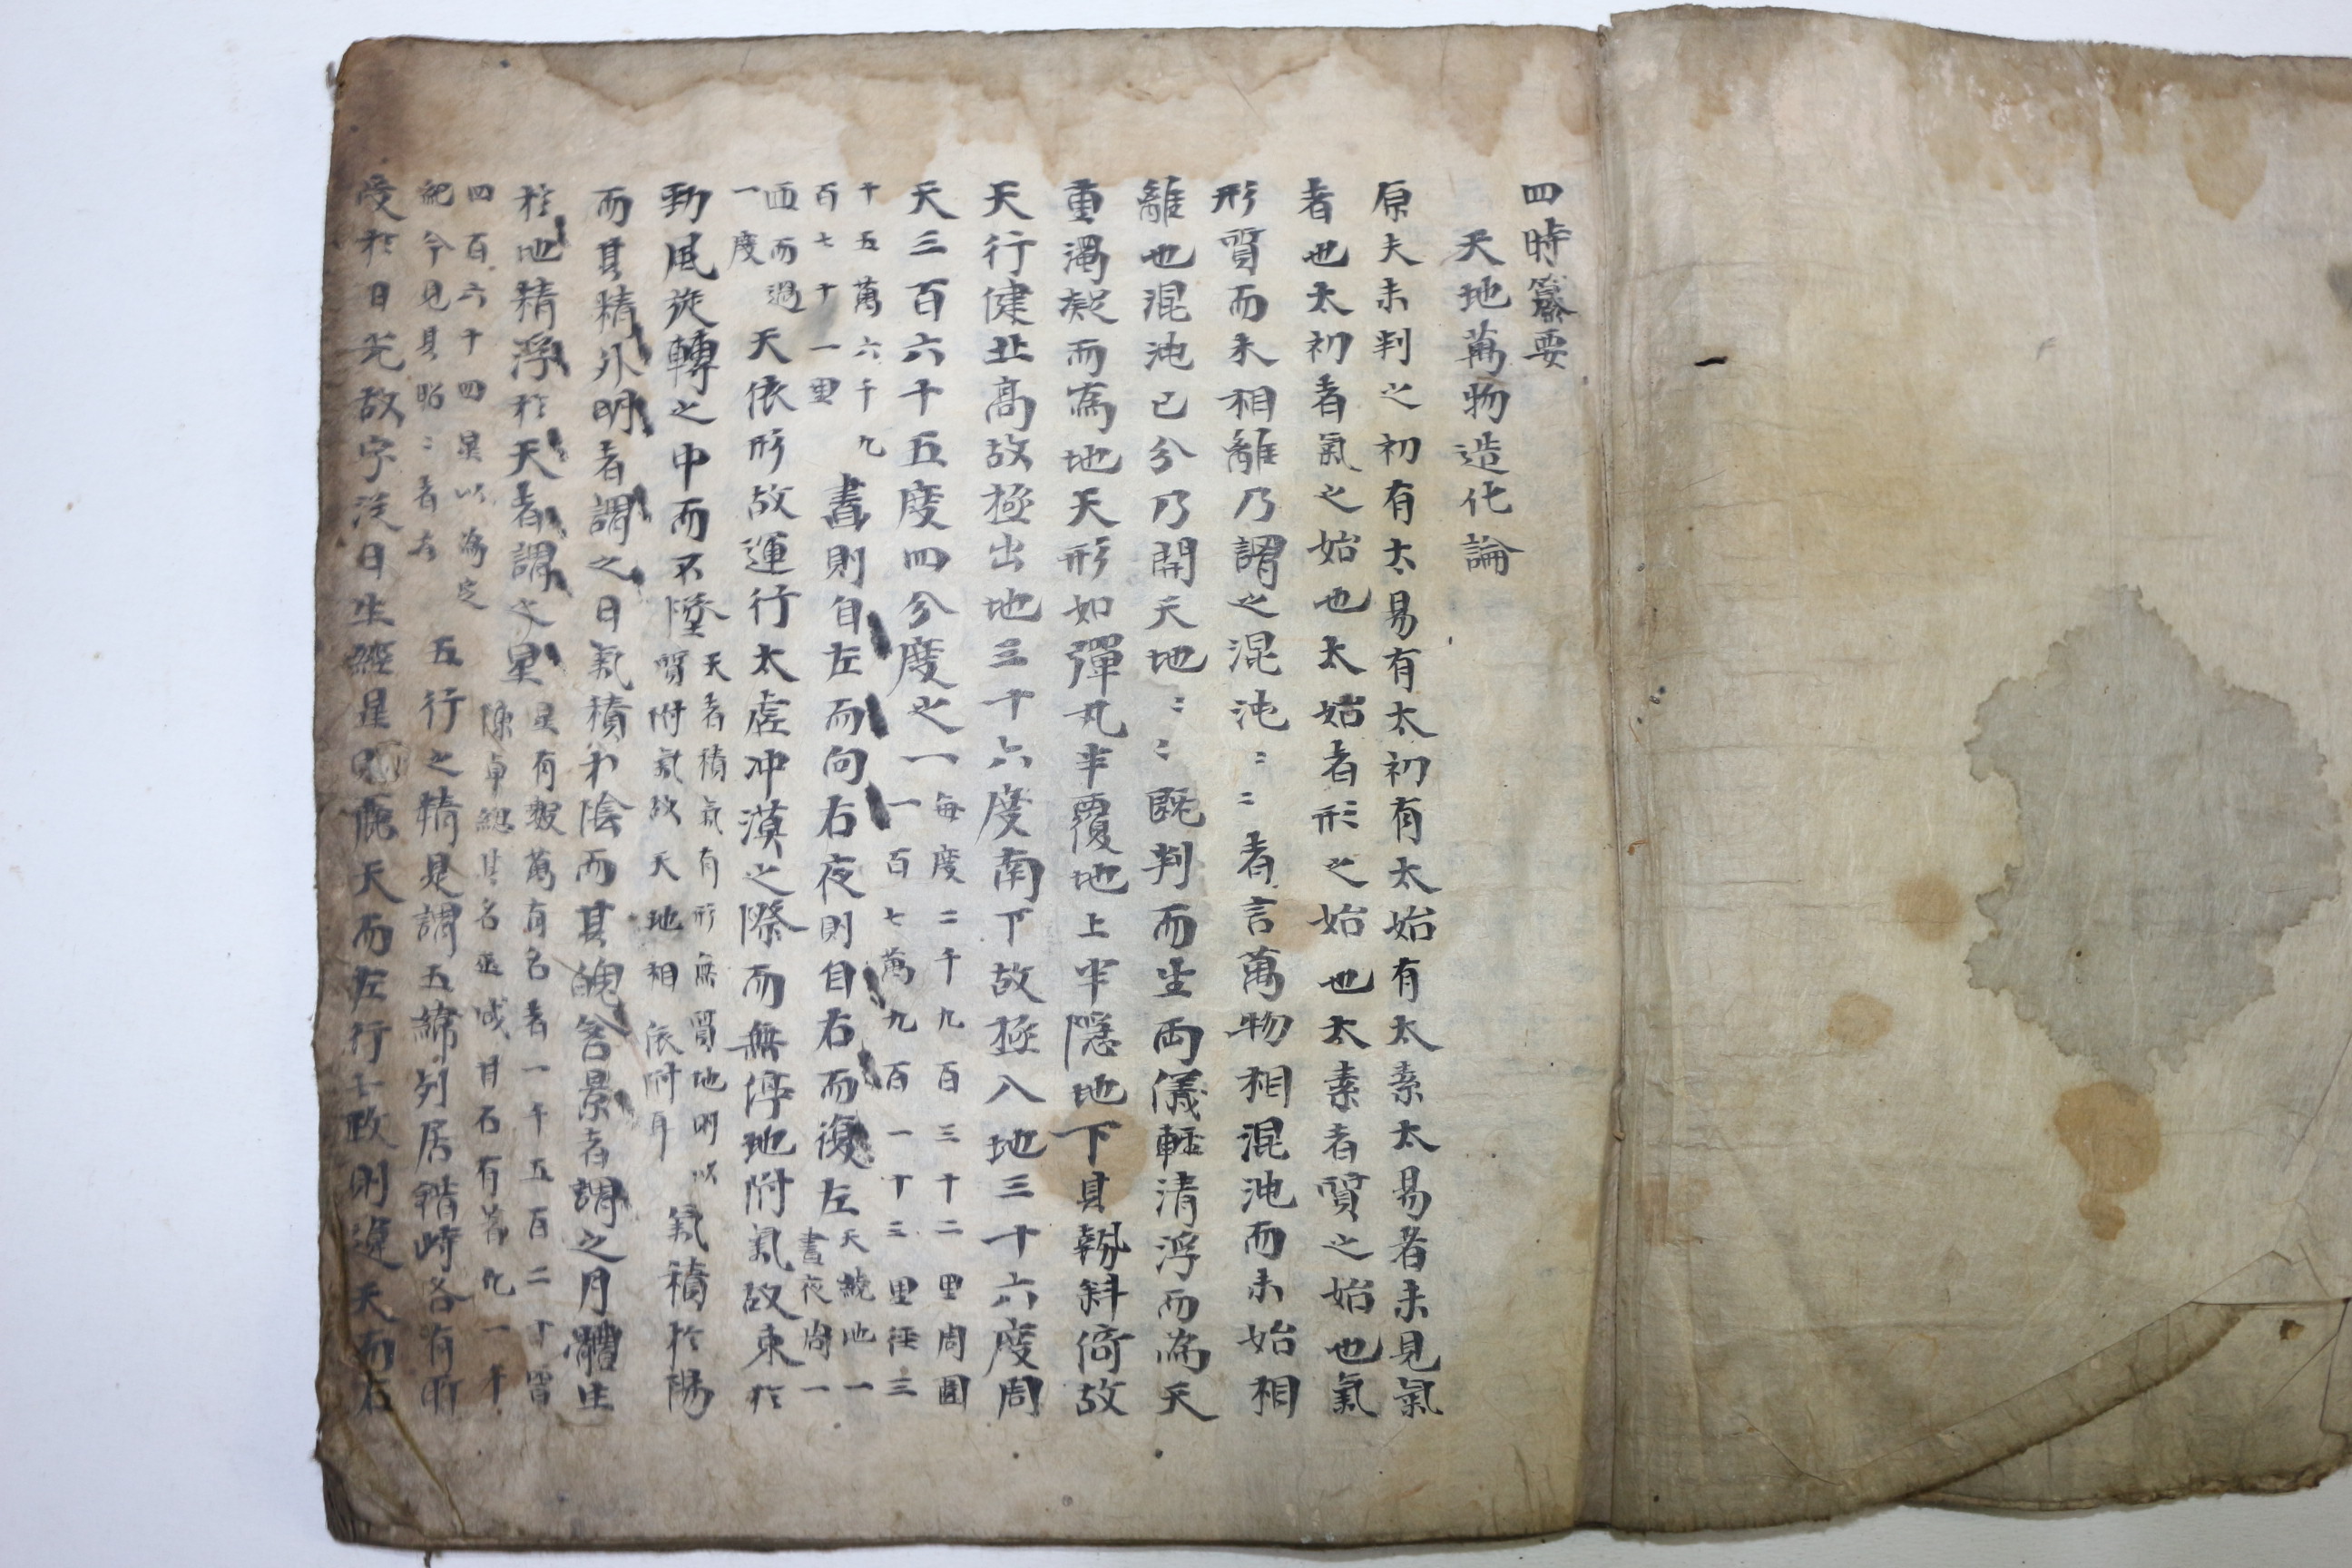 四時纂要
天地萬物造化論
原夫未判之初有太易有太初有太始有太素太易者未見氣
者也太初者氣之始也太始者形之始也太素者質之始也氣
形質而未相離乃謂之混沌〻〻者言萬物相混沌而未始相
離也混沌已分乃開天地〻〻旣判而生両儀輕清浮而為天
重濁凝而為地天形如彈丸半覆地上半隱地下其勢斜倚故
天行健北高故極出地三十六度南下故極入地三十六度周
天三百六十五度四分度之一
每度二千九百三十二里周圍
一百七萬九百一十三里徑三
十五萬六千九
百七十一里
晝則自左而向右夜則自右而復左
天繞地一
晝夜周一
面而過
一度
天依形故運行太虛冲漠之際而無停地附氣故束於
勁風旋轉之中而不墜
天者積氣有形無質地明以
質附氣故天地相依附耳
氣積於陽
而其精外明者謂之日氣積於陰而其魄含景者謂之月體生
於地精浮於天者謂之星
星有數萬有名者一千五百二十習
陳卓總其名巫咸甘石有著凡一千
四百六十四星以為定
紀今見其昭〻者右
五行之精是謂五緯列居錯峙各有所
受於日光故字從日生經星麗天而左行七政則違天而右